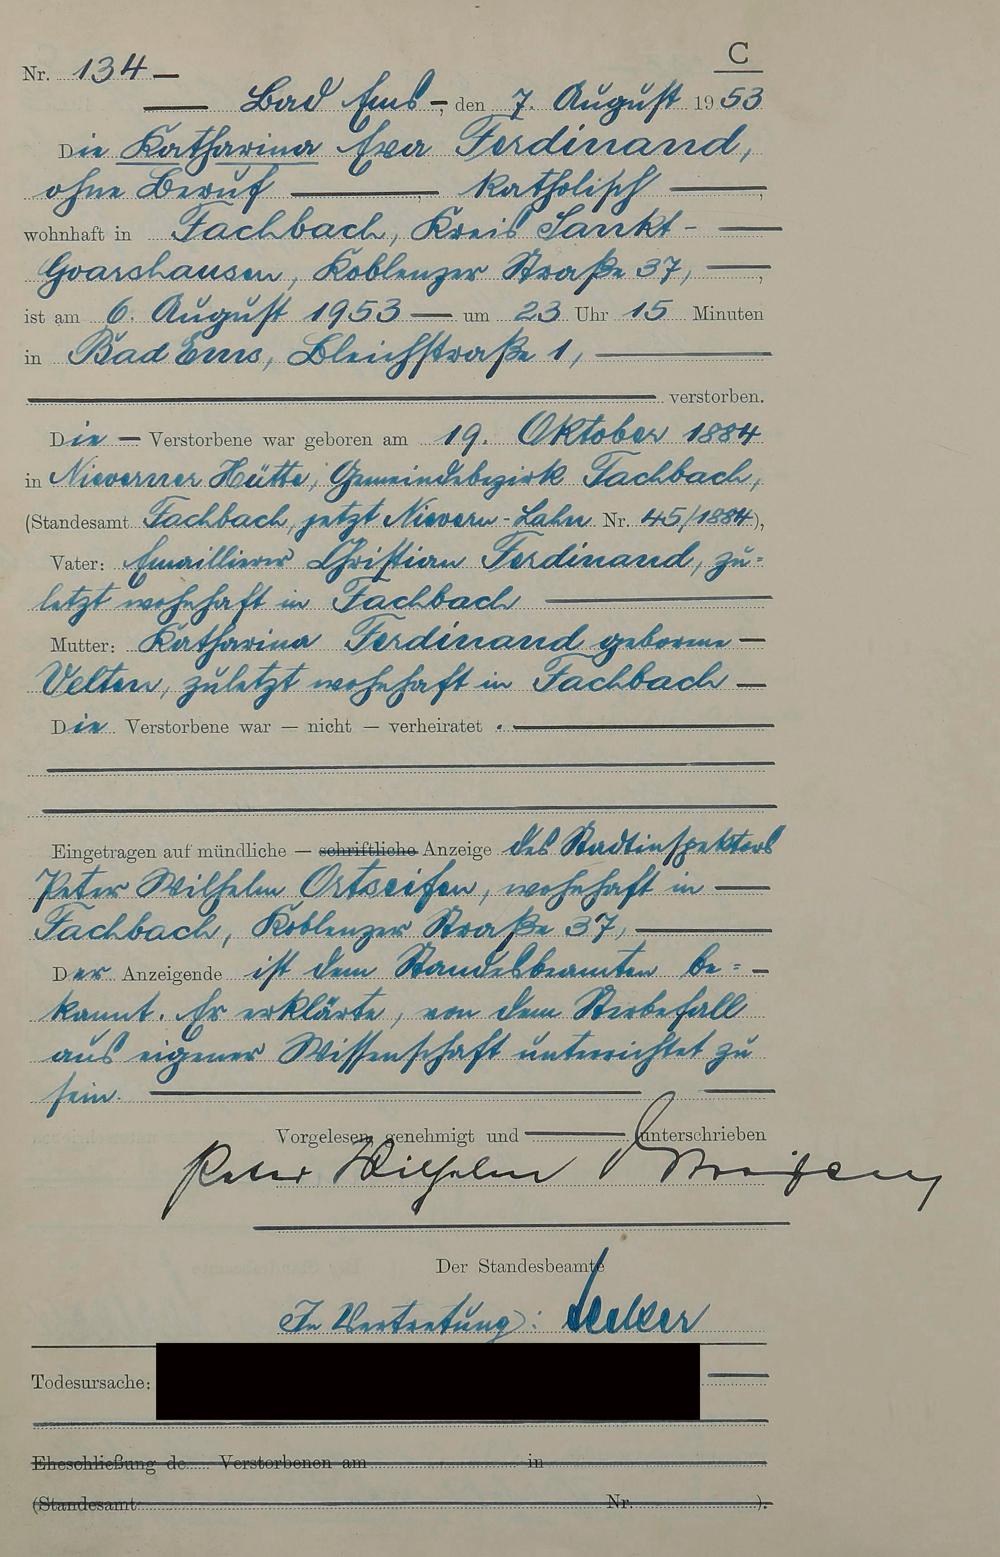 C
Nr. 134 —
— Bad Ems —, den 7. August 1953
Die Katharina Eva Ferdinand,
ohne Beruf —, katholisch —,
wohnhaft in Fachbach, Kreis Sankt- —
Goarshausen, Koblenzer Straße 37, —,
ist am 6. August 1953 — um 23 Uhr 15 Minuten
in Bad Ems, Bleichstraße 1, —
— verstorben.
Die — Verstorbene war geboren am 19. Oktober 1884
in Nieverner Hütte, Gemeindebezirk Fachbach,
(Standesamt Fachbach, jetzt Nievern-Lahn Nr. 45/1884),
Vater: Emaillierer Christian Ferdinand, zu-
letzt wohnhaft in Fachbach —
Mutter: Katharina Ferdinand geborene —
Velten, zuletzt wohnhaft in Fachbach —
Die Verstorbene war — nicht — verheiratet. —
Eingetragen auf mündliche — schriftliche Anzeige des Stadtinspektors
Peter Wilhelm Ortseifen, wohnhaft in —
Fachbach, Koblenzer Straße 37, —
Der Anzeigende ist dem Standesbeamten be= —
kannt. Er erklärte, von dem Sterbefall
aus eigener Wissenschaft unterrichtet zu
sein. —
Vorgelesen, genehmigt und — unterschrieben
Peter Wilhelm Ortseifen
Der Standesbeamte
In Vertretung:
Todesursache: —
Eheschließung de Verstorbenen am in
(Standesamt Nr. ).